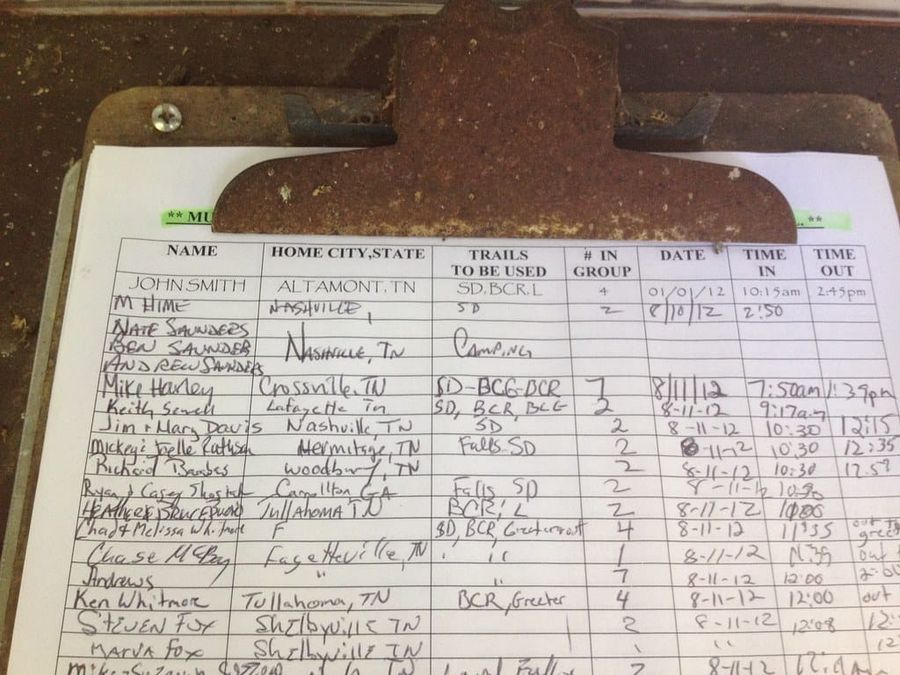 ** MU **
NAME HOME CITY,STATE TRAILS TO BE USED # IN GROUP DATE TIME IN TIME OUT
JOHN SMITH ALTAMONT, TN SD, BCR, L 4 01/01/12 10:15am 2:45pm
M HIME NASHVILLE, SD 2 8/10/12 2:50
NATE SAUNDERS
BEN SAUNDER NASHVILLE, TN CAMPING
ANDREW SAUNDERS
Mike Harley Crossville, TN SD-BCG-BCR 7 8/11/12 7:50am 1:39pm
Keith Lafayette Tn SD, BCR, BCG 2 8-11-12 9:17am
Jim + Mary Davis Nashville, TN SD 2 8-11-12 10:30 12:15
Mickey & Joelle Hermitage, TN Falls SD 2 8-11-12 10:30 12:35
Richard woodbury, TN 2 8-11-12 10:30 12:59
Ryan & Casey Carrollton GA Falls SD 2
HEATHER TULLAHOMA TN BCR, L 2 8-17-12
Chad & Melissa Whitmore F SD, BCR, 4 8-11-12 11:35 out
Chase Fayetteville, TN " 1 8-11-12 out
Andrews " " 7 8-11-12 12:00
Ken Whitmore Tullahoma, TN BCR, Greeter 4 8-11-12 12:00 out
STEVEN FOX Shelbyville TN 2 8-11-12 12:08 12:
MARVA FOX Shelbyville TN " 12
8-11-12